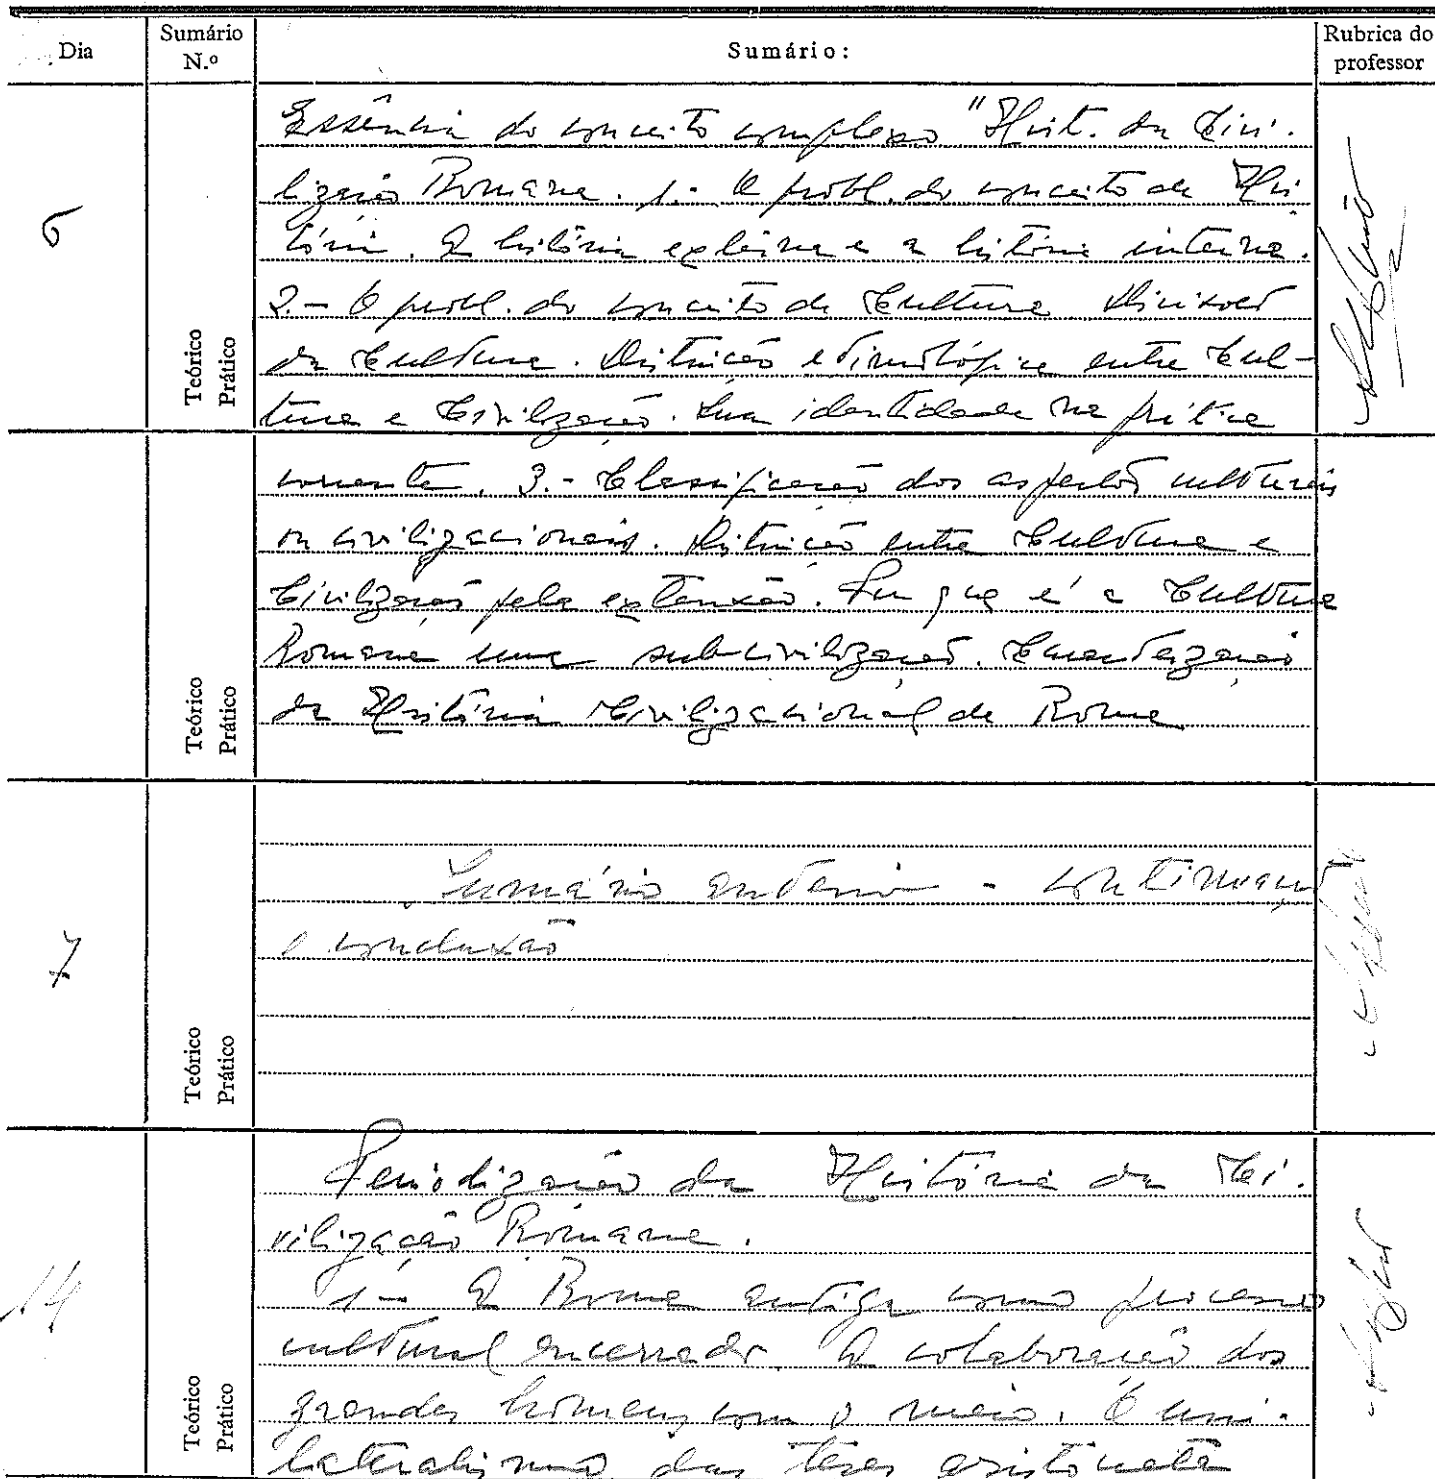 Dia
Sumário
N.º
Sumário:
Rubrica do
professor
6
Teórico
Prático
Essência do conceito complexo "Hist. da Civi-
lização Romana. 1.- O probl. do conceito de His-
tória. A história externa e a história interna.
2.- O probl. do conceito de Cultura Divisões
da Cultura. Distinção etimológica entre Cul-
tura e Civilização. Sua identidade na prática
Teórico
Prático
corrente. 3.- Classificação dos aspectos culturais
ou civilizacionais. Distinção entre Cultura e
Civilização pela extensão. Em que é a Cultura
Romana uma subcivilização. Caracterização
da História Civilizacional de Roma
7
Teórico
Prático
Sumário anterior - continuação
e conclusão
14
Teórico
Prático
Periodização da História da Ci-
vilização Romana.
1- A Roma antiga como processo
cultural encerrado. A colaboração dos
grandes homens com o meio. O uni-
lateralismo das teses aristocrata